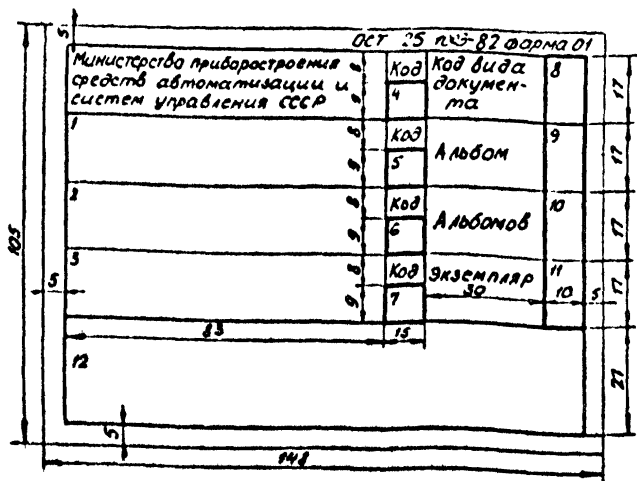 5
ОСТ 25 82 форма 01
Министерство приборостроения
средств автоматизации и
систем управления СССР
8
9
Код
4
Код вида
докумен-
та
8
17
1
8
9
Код
5
Альбом
9
17
2
8
9
Код
6
Альбомов
10
17
3
8
9
Код
7
Экземпляр
30
11
10
5
17
105
5
83
15
12
27
5
148